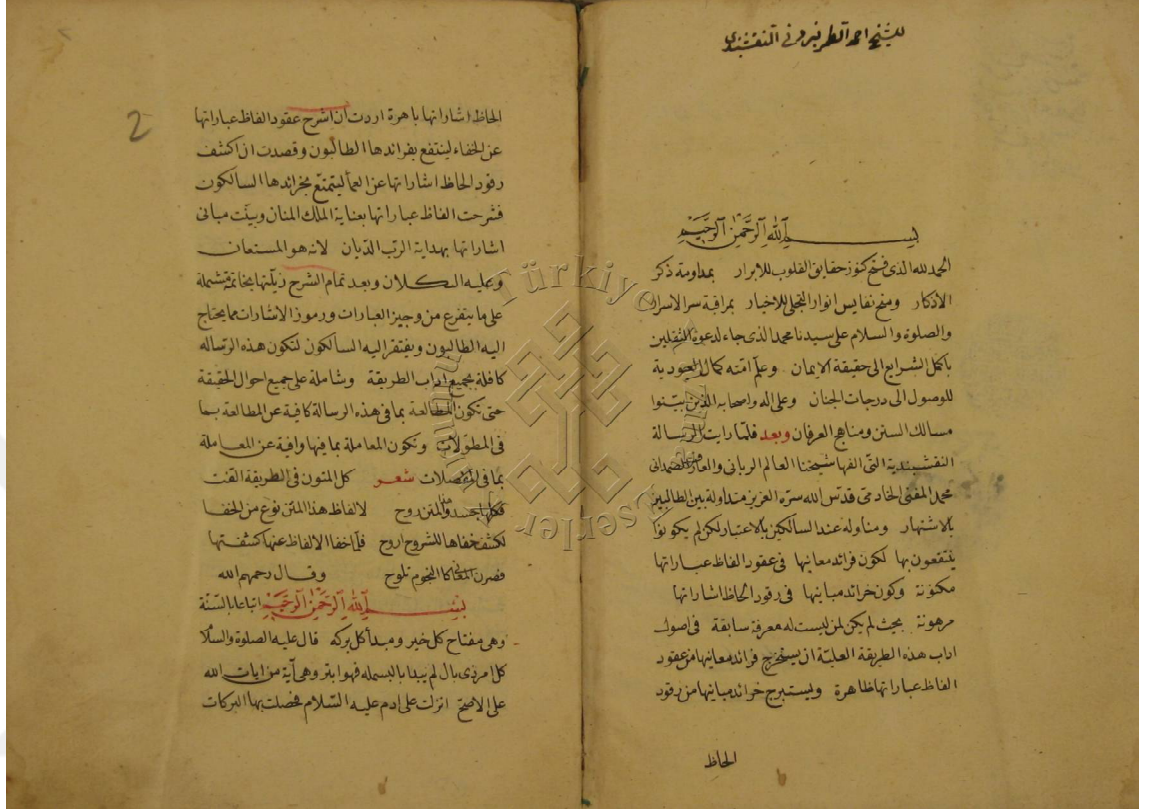 للشيخ احمد الطربزوني النقشبندي
بسم الله الرحمن الرحيم
الحمد لله الذى فتح كنوز حقايق القلوب للابرار بمداومة ذكر
الاذكار ومنح نفايس انوار التجلى للاخيار بمراقبة سر الاسرار
والصلوة والسلام على سيدنا محمد الذى جاء لدعوة الثقلين
باكمل الشرايع الى حقيقة الايمان وعلم امته كمال العبودية
للوصول الى درجات الجنان وعلى اله واصحابه الذين بينوا
مسالك السنن ومناهج العرفان وبعد فلما رايت الرسالة
النقشبندية التى الفها شيخنا العالم الربانى والعارف الصمدانى
محمد المفتى الخادمى قدس الله سره العزيز متداولة بين الطالبين
بالاشتهار ومتناوله عند السالكين بالاعتبار لكن لم يكونوا
ينتفعون بها لكون فرائد معانيها فى عقود الفاظ عباراتها
مكنونة وكون خرائد مبانيها فى رقود الحاظ اشاراتها
مرهونة بحيث لم يكن لمن ليست له معرفة سابقة فى اصول
اداب هذه الطريقة العلية ان يستخرج فرائد معانيها من عقود
الفاظ عباراتها ظاهرة ويستبرج خرائد مبانيها من رقود
الحاظ
2
الحاظ اشاراتها باهرة اردت ان اشرح عقود الفاظ عباراتها
عن الخفاء لينتفع بفرائدها الطالبون وقصدت ان اكشف
رقود الحاظ اشاراتها عن العما ليتمتع بخرائدها السالكون
فشرحت الفاظ عباراتها بعناية الملك المنان وبينت مبانى
اشاراتها بهداية الرب الديان لانه هو المستعان
وعليه التكلان وبعد تمام الشرح ذيلتها بخاتمة مشتملة
على ما يتفرع من وجيز العبارات ورموز الاشارات مما يحتاج
اليه الطالبون ويفتقر اليه السالكون لتكون هذه الرساله
كافلة بجميع اداب الطريقة وشاملة على جميع احوال الحقيقة
حتى تكون المطالعة بما فى هذه الرسالة كافية عن المطالعة بما
فى المطولات وتكون المعاملة بما فيها وافية عن المعاملة
بما فى المفصلات شعر كل المتون فى الطريقة الفت
فكلها جسد والمتن روح لالفاظ هذا المتن نوع من الخفا
لكشف خفاها للشروح اروح فلما خفا الالفاظ عنها كشفتها
فصرن المعانى كالنجوم تلوح وقال رحمهم الله
بسم الله الرحمن الرحيم اتباعا بالسنة
وهى مفتاح كل خير ومبدأ كل بركه قال عليه الصلوة والسلام
كل امر ذى بال لم يبدا بالبسمله فهو ابتر وهى آية من ايات الله
على الاصح انزلت على ادم عليه السلام فحصلت بها البركات
Türkiye
Eserler